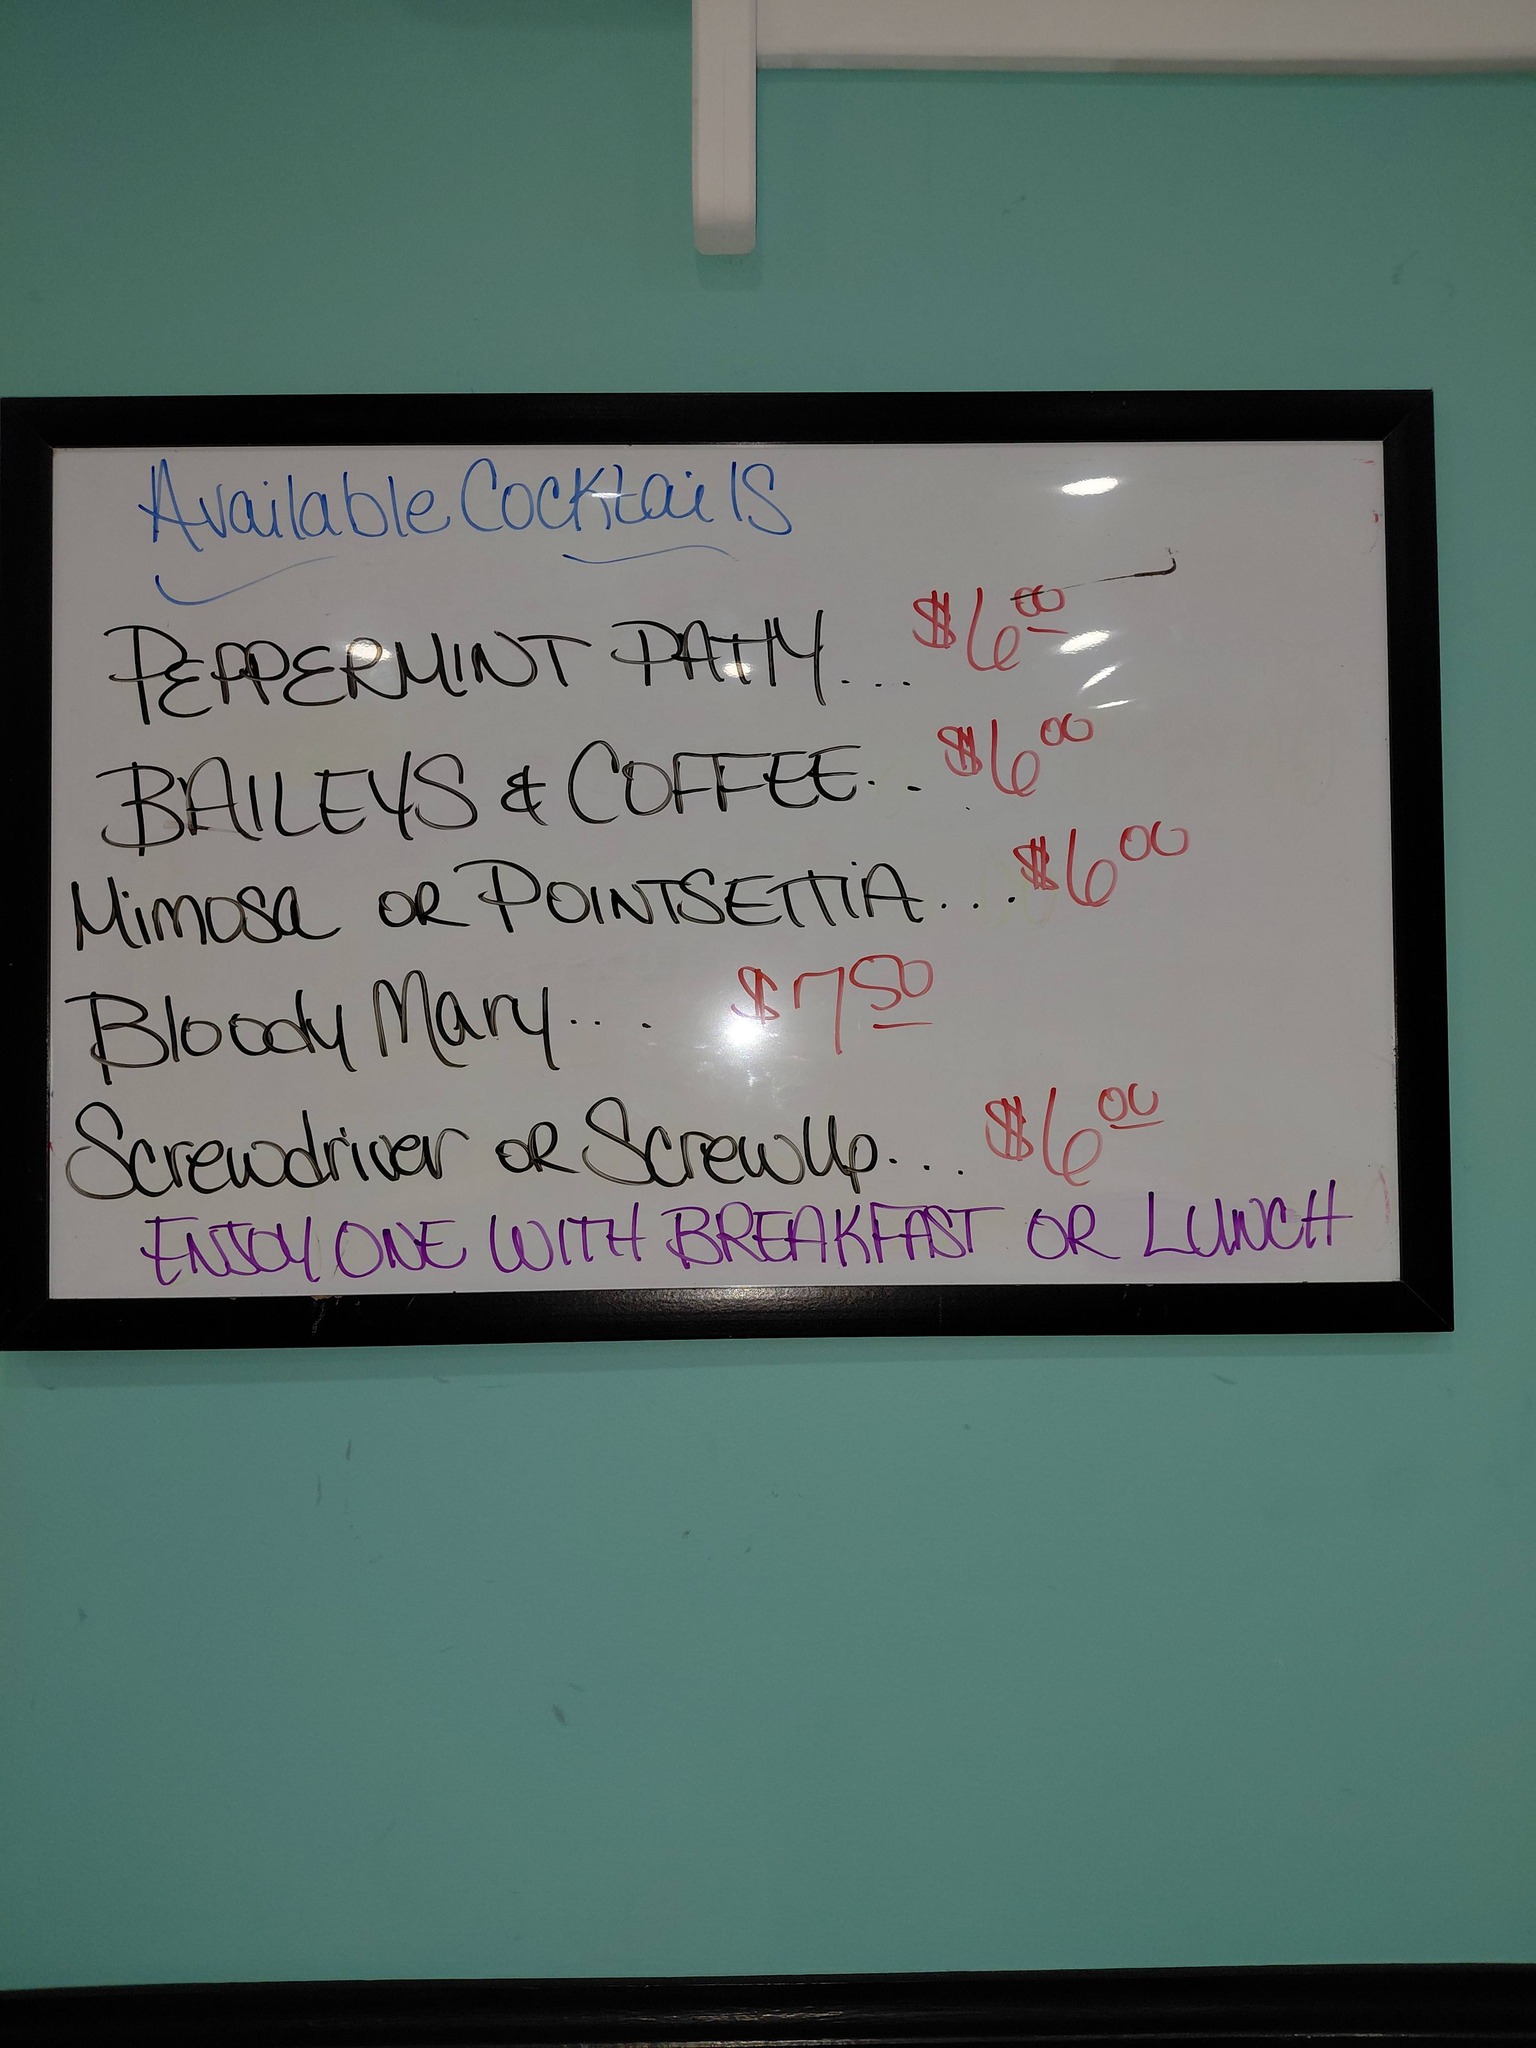 Available Cocktails
PEPPERMINT PATTY.... $6.00
BAILEYS & COFFEE... $6.00
Mimosa OR POINTSETTIA.... $6.00
Bloody Mary.... $7.50
Screwdriver OR Screw Up.... $6.00
ENJOY ONE WITH BREAKFAST OR LUNCH